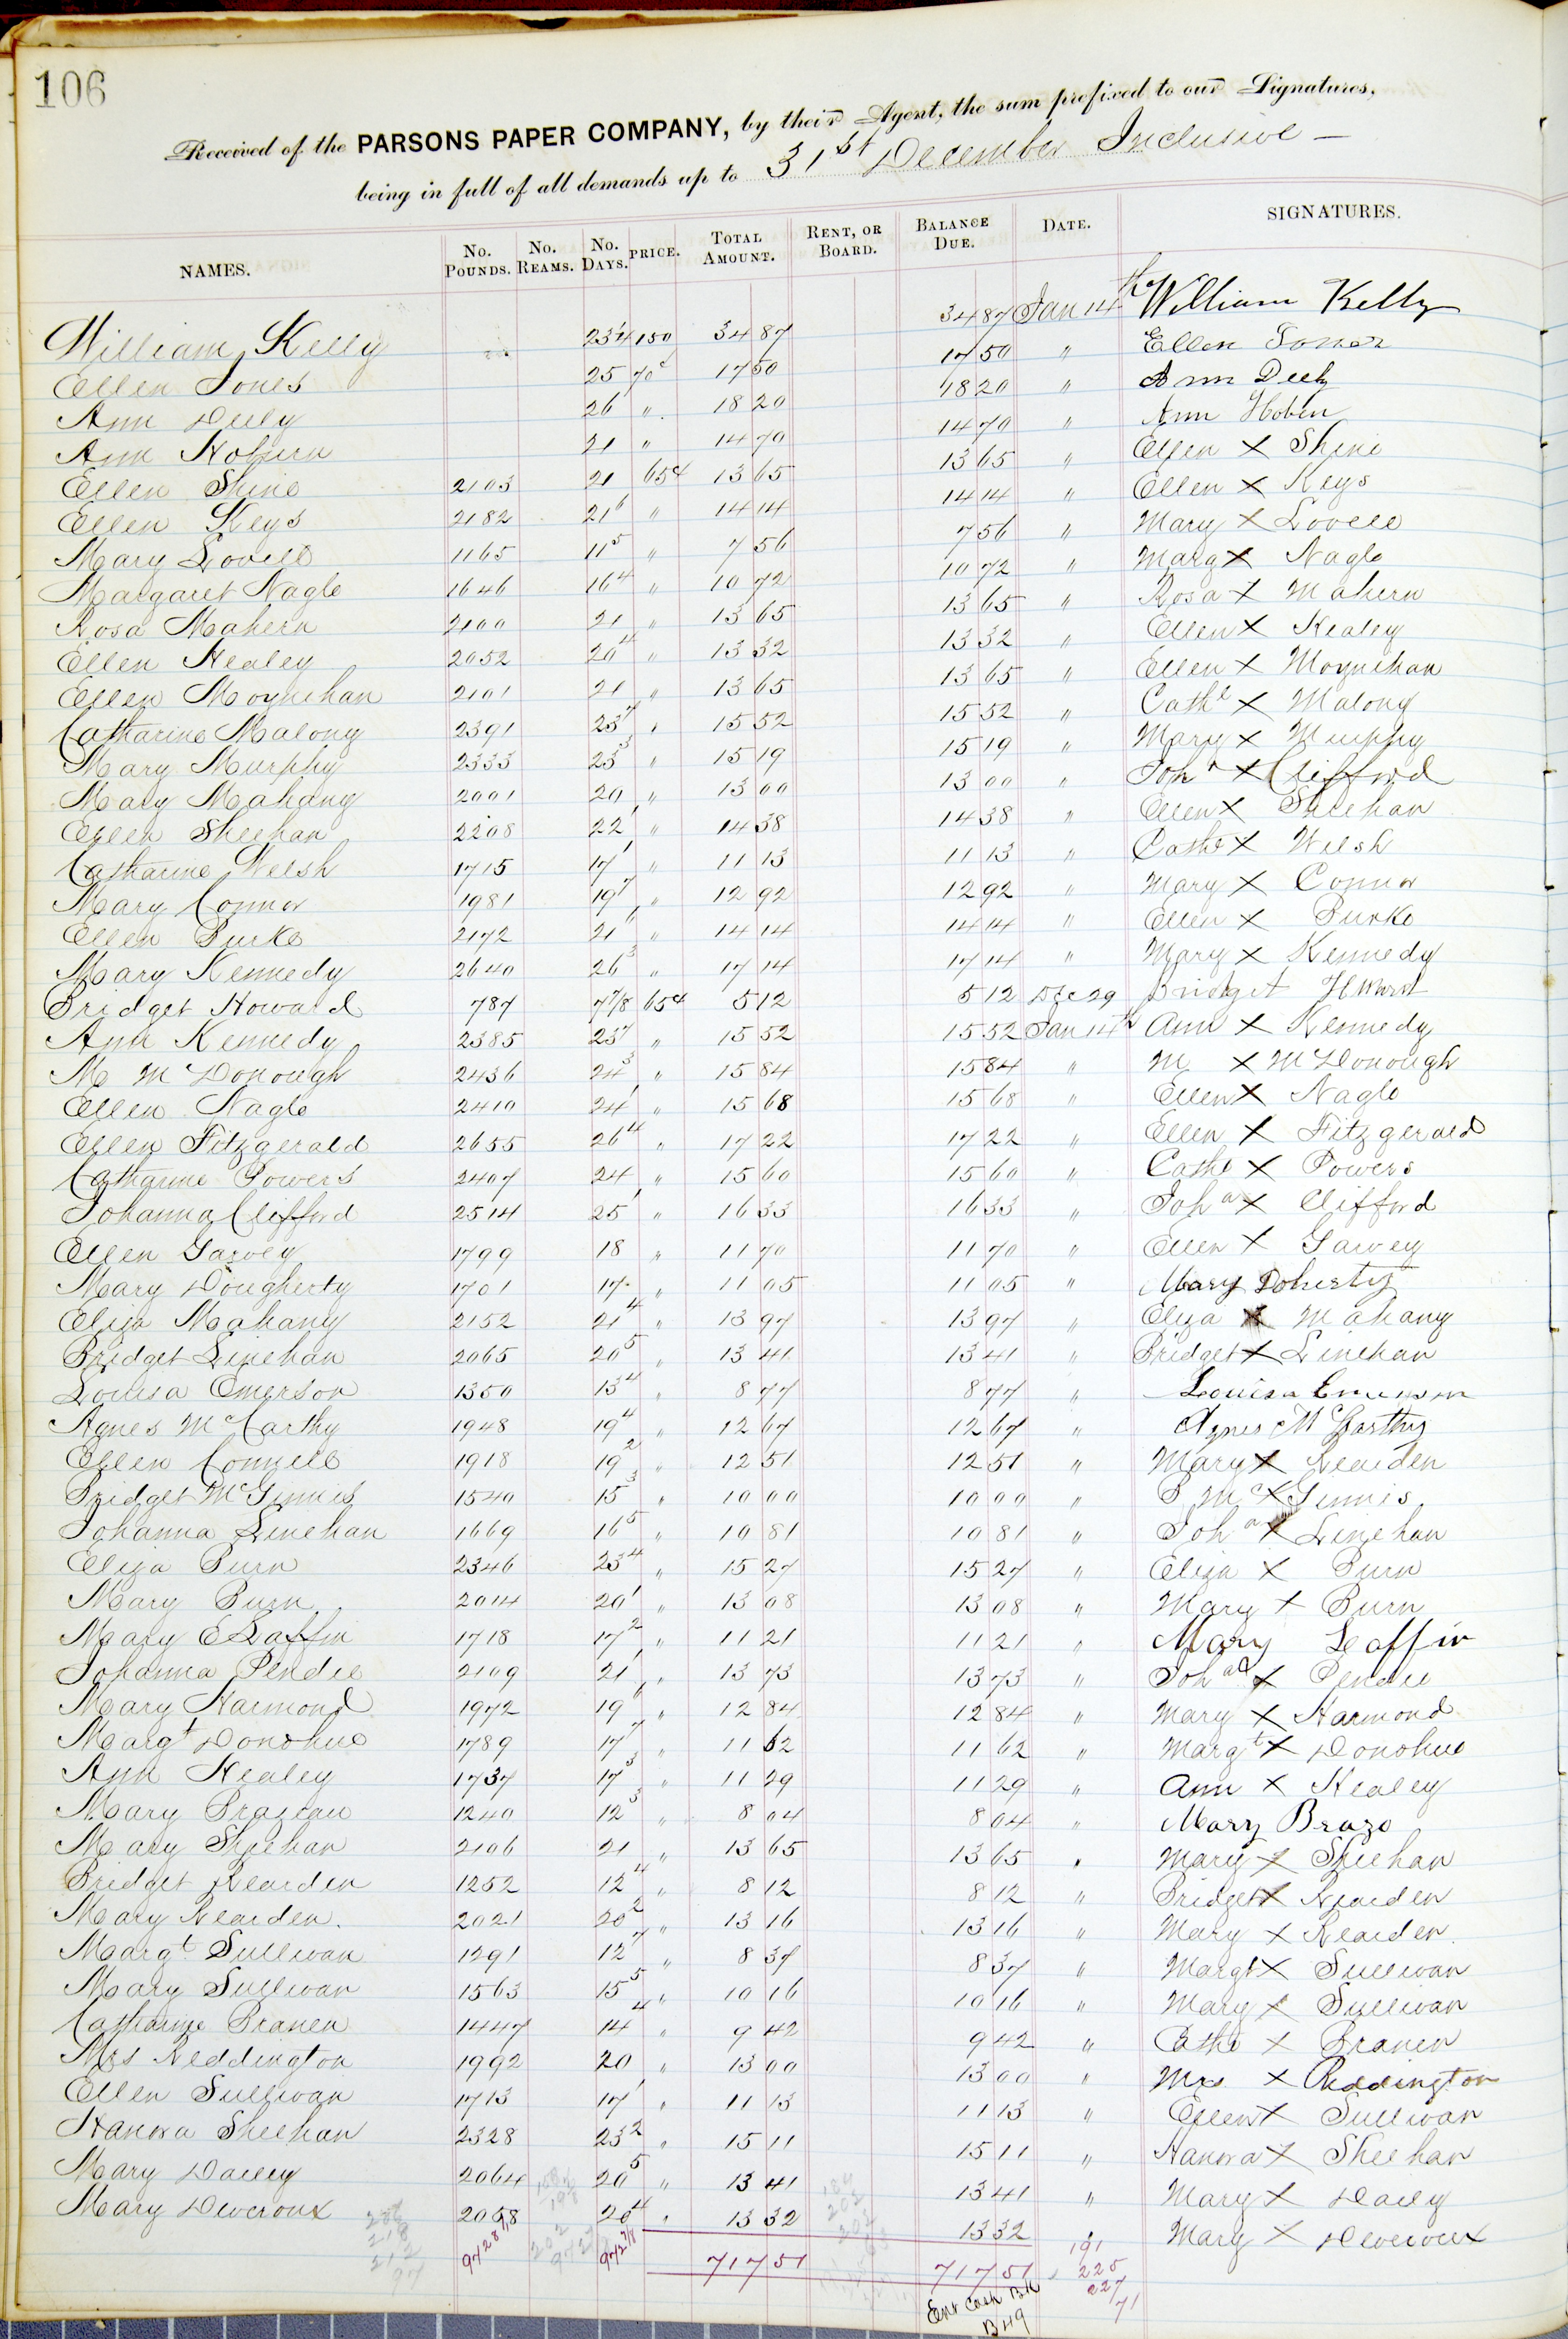 106
Received of the PARSONS PAPER COMPANY, by their Agent, the sum prefixed to our Signatures,
being in full of all demands up to 31st December Inclusive —
NAMES. No. POUNDS. No. REAMS. No. DAYS. PRICE. TOTAL AMOUNT. RENT, OR BOARD. BALANCE DUE. DATE. SIGNATURES.
William Kelly 23¼ 150 34 87 34 87 Jan 14th William Kelly
Ellen Jones 25 70c 17 50 17 50 " Ellen Jones
Ann Deely 26 " 18 20 18 20 " Ann Deely
Ann Hoburn 21 " 14 70 14 70 " Ann Hobin
Ellen Shine 2103 21 65c 13 65 13 65 " Ellen X Shine
Ellen Keys 2182 21 6 " 14 14 14 14 " Ellen X Keys
Mary Lovell 1165 11 5 " 7 56 7 56 " Mary X Lovell
Margaret Nagle 1646 16 4 " 10 72 10 72 " Marg X Nagle
Rosa Mahern 2100 21 " 13 65 13 65 " Rosa X Mahern
Ellen Healey 2052 20 4 " 13 32 13 32 " Ellen X Healey
Ellen Moynihan 2101 21 " 13 65 13 65 " Ellen X Moynihan
Catharine Malony 2391 23 7 " 15 52 15 52 " Cathe X Malony
Mary Murphy 2333 23 3 " 15 19 15 19 " Mary X Murphy
Mary Mahany 2001 20 " 13 00 13 00 " Joha X Clifford
Ellen Sheehan 2208 22 1 " 14 38 14 38 " Ellen X Sheehan
Catharine Welsh 1715 17 1 " 11 13 11 13 " Cathe X Welsh
Mary Connor 1981 19 7 " 12 92 12 92 " Mary X Connor
Ellen Burke 2172 21 6 " 14 14 14 14 " Ellen X Burke
Mary Kennedy 2640 26 3 " 17 14 17 14 " Mary X Kennedy
Bridget Howard 787 7 7/8 65c 5 12 5 12 Dec 29 Bridget
Ann Kennedy 2385 23 7 " 15 52 15 52 Jan 14th Ann X Kennedy
M McDonough 2436 24 3 " 15 84 15 84 " M X McDonough
Ellen Nagle 2410 24 1 " 15 68 15 68 " Ellen X Nagle
Ellen Fitzgerald 2655 26 4 " 17 22 17 22 " Ellen X Fitzgerald
Catharine Powers 2407 24 " 15 60 15 60 " Cathe X Powers
Johanna Clifford 2514 25 1 " 16 33 16 33 " Joha X Clifford
Ellen Garvey 1799 18 " 11 70 11 70 " Ellen X Garvey
Mary Dougherty 1701 17 " 11 05 11 05 " Mary Doherty
Eliza Mahany 2152 21 4 " 13 97 13 97 " Eliza X Mahany
Bridget Linehan 2065 20 5 " 13 41 13 41 " Bridget X Linehan
Louisa Emerson 1350 13 4 " 8 77 8 77 " Louisa Emerson
Agnes McCarthy 1948 19 4 " 12 67 12 67 " Agnes McCarthy
Ellen Connell 1918 19 2 " 12 51 12 51 " Mary X Rearden
Bridget McGinnis 1540 15 3 " 10 00 10 00 " B Mc X Ginnis
Johanna Linehan 1669 16 5 " 10 81 10 81 " Joha X Linehan
Eliza Burn 2346 23 4 " 15 27 15 27 " Eliza X Burn
Mary Burn 2014 20 1 " 13 08 13 08 " Mary X Burn
Mary E Laffin 1718 17 2 " 11 21 11 21 " Mary Laffin
Johanna Pendie 2109 21 1 " 13 73 13 73 " Joha X Pendie
Mary Harmond 1972 19 6 " 12 84 12 84 " Mary X Harmond
Margt Donohue 1789 17 7 " 11 62 11 62 " Margt X Donohue
Ann Healey 1737 17 3 " 11 29 11 29 " Ann X Healey
Mary Brazeau 1240 12 3 " 8 04 8 04 " Mary Brazo
Mary Sheehan 2106 21 " 13 65 13 65 " Mary X Sheehan
Bridget Rearden 1252 12 4 " 8 12 8 12 " Bridget X Rearden
Mary Rearden. 2021 20 2 " 13 16 13 16 " Mary X Rearden.
Margt Sullivan 1291 12 7 " 8 37 8 37 " Margt X Sullivan
Mary Sullivan 1563 15 5 " 10 16 10 16 " Mary X Sullivan
Catharine Branen 1447 14 4 " 9 42 9 42 " Cathe X Branen
Mrs Reddington 1992 20 " 13 00 13 00 " Mrs X Reddington
Ellen Sullivan 1713 17 1 " 11 13 11 13 " Ellen X Sullivan
Hanora Sheehan 2328 23 2 " 15 11 15 11 " Hanora X Sheehan
Mary Dailey 2064 20 5 " 13 41 13 41 " Mary X Daily
Mary Deveroux 2058 20 4 " 13 32 13 32 " Mary X Deveroux
972 7/8 717 51 717 51 191
225
227
71
Ent Cash Bk
B 49